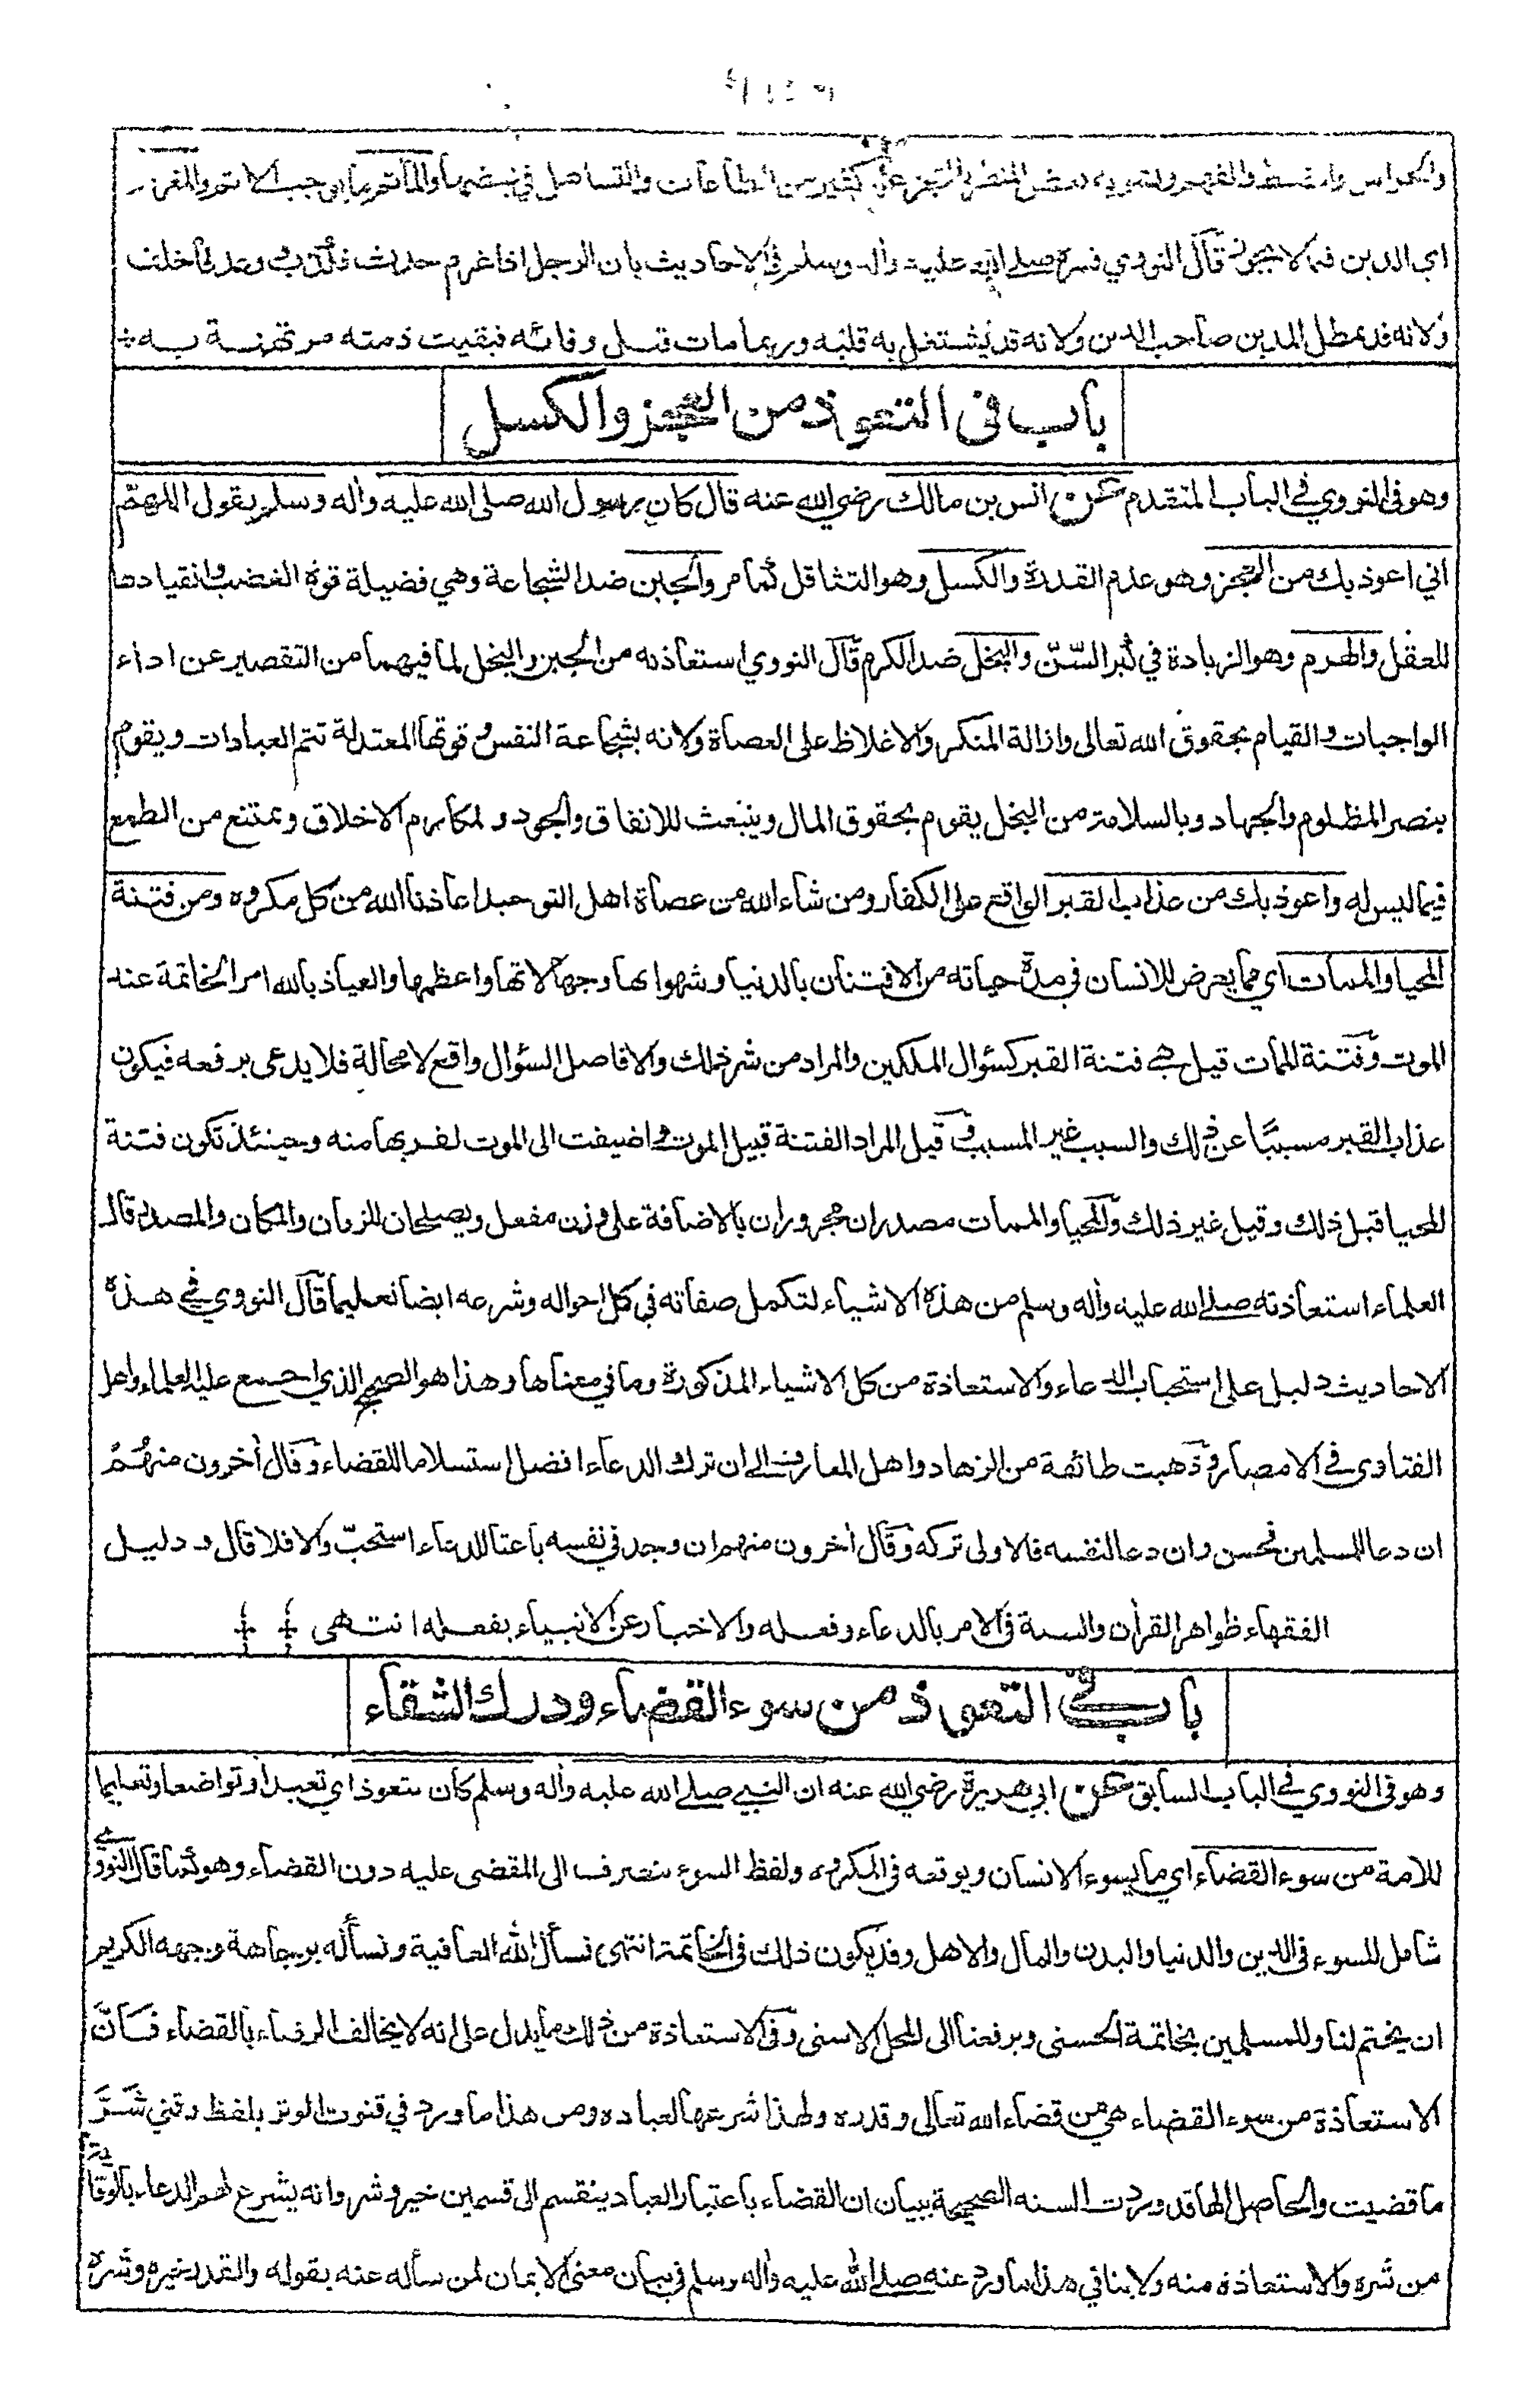 والفهم عن كثير من الطاعات والتساهل في بعضها والمأثم ما يوجب الاثم والمغرم
اي الدين فيما لا يجوز قال النووي فسره صلى الله عليه وأله وسلم في الاحاديث بان الرجل اذا غرم حدث فكذب ووعد فأخلف
ولانه قد يمطل المدين صاحب الدين ولانه قد يشتغل به قلبه وربما مات قبل وفائه فبقيت ذمته مرتهنة به
باب في التعوذ من العجز والكسل
وهو في النووي في الباب المتقدم عن انس بن مالك رضي الله عنه قال كان رسول الله صلى الله عليه واله وسلم يقول اللهمّ
اني اعوذ بك من العجز وهو عدم القدرة والكسل وهو التثاقل كما مر والجبن ضد الشجاعة وهي فضيلة قوة الغضب وانقيادها
للعقل والهرم وهو الزيادة في كبر السّنّ والبخل ضد الكرم قال النووي استعاذته من الجبن والبخل لما فيهما من التقصير عن اداء
الواجبات والقيام بحقوق الله تعالى وازالة المنكر والاغلاظ على العصاة ولانه بشجاعة النفس وقوتها المعتدلة تتم العبادات ويقوم
بنصر المظلوم والجهاد وبالسلامة من البخل يقوم بحقوق المال وينبعث للانفاق والجود ولمكارم الاخلاق ويمتنع من الطمع
فيما ليس له واعوذ بك من عذاب القبر الواقع على الكفار ومن شاء الله من عصاة اهل التوحيد اعاذنا الله من كل مكروه ومن فتنة
المحيا والممات اي مما يعرض للانسان في مدة حياته من الافتتان بالدنيا وشهواتها وجهالاتها واعظمها والعياذ بالله امر الخاتمة عند
الموت وفتنة الممات قيل هي فتنة القبر كسؤال الملكين والمراد من شر ذلك والا فاصل السؤال واقع لا محالة فلا يدعى برفعه فيكون
عذاب القبر مسببًا عن ذلك والسبب غير المسبب وقيل المراد الفتنة قبيل الموت واضيفت الى الموت لقربها منه وحينئذ تكون فتنة
المحيا قبل ذلك وقيل غير ذلك والمحيا والممات مصدران مجروران بالاضافة على وزن مفعل ويصلحان للزمان والمكان والمصدر قال
العلماء استعاذته صلى الله عليه وأله وسلم من هذه الاشياء لتكمل صفاته في كل احواله وشرعه ايضا تعليما قال النووي في هذه
الاحاديث دليل على استحباب الدعاء والاستعاذة من كل الاشياء المذكورة وما في معناها وهذا هو الصحيح الذي اجمع عليه العلماء واهل
الفتاوى في الامصار وذهبت طائفة من الزهاد واهل المعارف الى ان ترك الدعاء افضل استسلاما للقضاء وقال أخرون منهم
ان دعا للمسلمين فحسن وان دعا لنفسه فالاولى تركه وقال أخرون منهم ان وجد في نفسه باعثا للدعاء استحبّ والا فلا قال ودليل
الفقهاء ظواهر القرأن والسنة في الامر بالدعاء وفعله والاخبار عن الانبياء بفعله انتهى
باب في التعوذ من سوء القضاء ودرك الشقاء
وهو في النووي في الباب السابق عن ابي هريرة رضي الله عنه ان النبي صلى الله عليه وأله وسلم كان يتعوذ اي تعبدا وتواضعا وتعليما
للامة من سوء القضاء اي ما يسوء الانسان ويوقعه في المكروه ولفظ السوء منصرف الى المقضى عليه دون القضاء وهو كما قال النووي
شامل للسوء في الدين والدنيا والبدن والمال والاهل وقد يكون ذلك في الخاتمة انتهى نسأل الله العافية ونسأله بوجاهة وجهه الكريم
ان يختم لنا وللمسلمين بخاتمة الحسنى ويرفعنا الى المحل الاسنى وفي الاستعاذة من ذلك ما يدل على انه لا يخالف الرضاء بالقضاء فانّ
الاستعاذة من سوء القضاء هي من قضاء الله تعالى وقدره ولهذا شرعها لعباده ومن هذا ما ورد في قنوت الوتر بلفظ وقني شرّ
ما قضيت والحاصل انها قد وردت السنه الصحيحة ببيان ان القضاء باعتبار العباد ينقسم الى قسمين خير وشر وانه يشرع لهم الدعاء بالوقاية
من شره والاستعاذة منه ولا ينافي هذا ما ورد عنه صلى الله عليه وأله وسلم في بيان معنى الايمان لمن سأله عنه بقوله والقدر خيره وشره